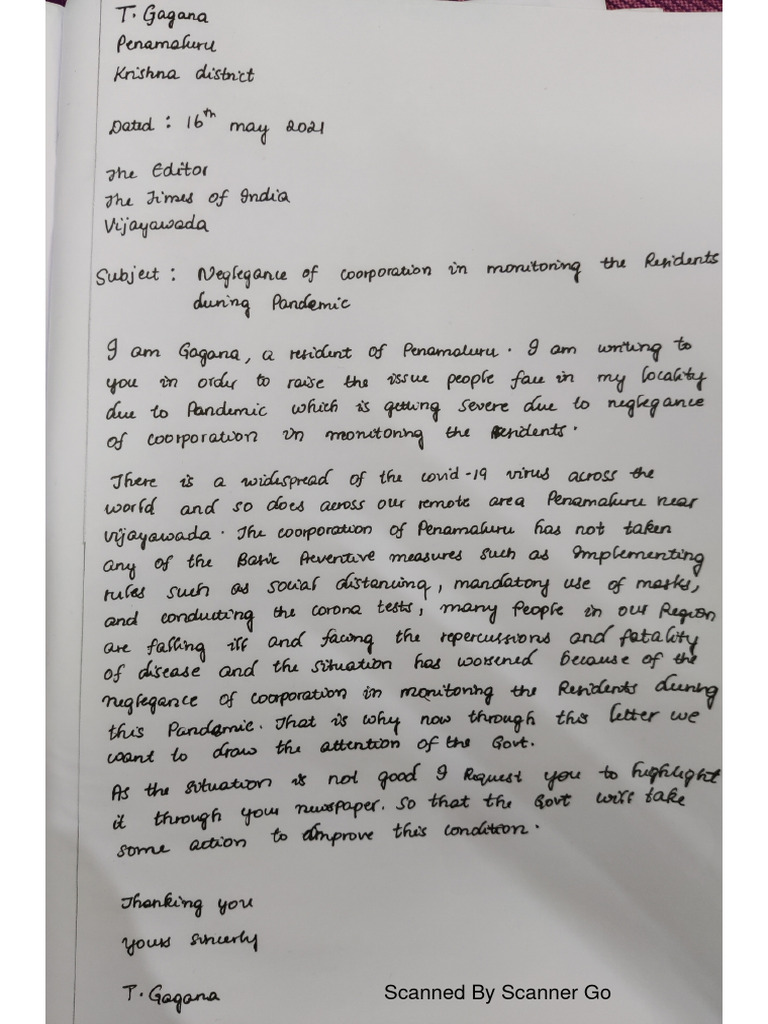 T. Gagana
Penamaluru
Krishna district
Dated : 16th may 2021
The Editor
The Times of India
Vijayawada
Subject : Neglegance of coorporation in monitoring the Residents
during Pandemic
I am Gagana, a resident of Penamaluru. I am writing to
you in order to raise the issue people face in my locality
due to Pandemic which is getting severe due to neglegance
of coorporation in monitoring the Residents.
There is a widespread of the covid-19 virus across the
world and so does across our remote area Penamaluru near
Vijayawada. The coorporation of Penamaluru has not taken
any of the Basic Preventive measures such as Implementing
rules such as social distancing, mandatory use of masks,
and conducting the corona tests, many People in our Region
are falling ill and facing the repercussions and fatality
of disease and the situation has worsened because of the
neglegance of coorporation in monitoring the Residents during
this Pandemic. That is why now through this letter we
want to draw the attention of the Govt.
As the situation is not good I Request you to highlight
it through your newspaper. so that the Govt will take
some action to improve this condition.
Thanking you
yours sincerly
T. Gagana
Scanned By Scanner Go